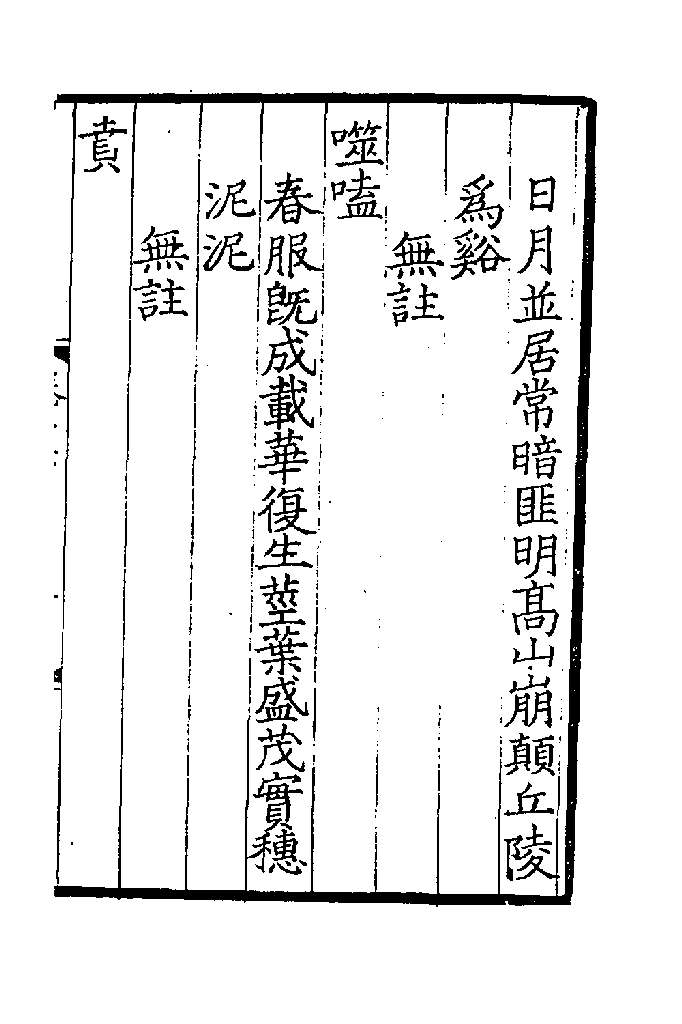 日月並居常暗匪明髙山崩顛丘陵
爲谿
無註
噬嗑
春服旣成載華復生莖葉盛茂實穗
泥泥
無註
賁